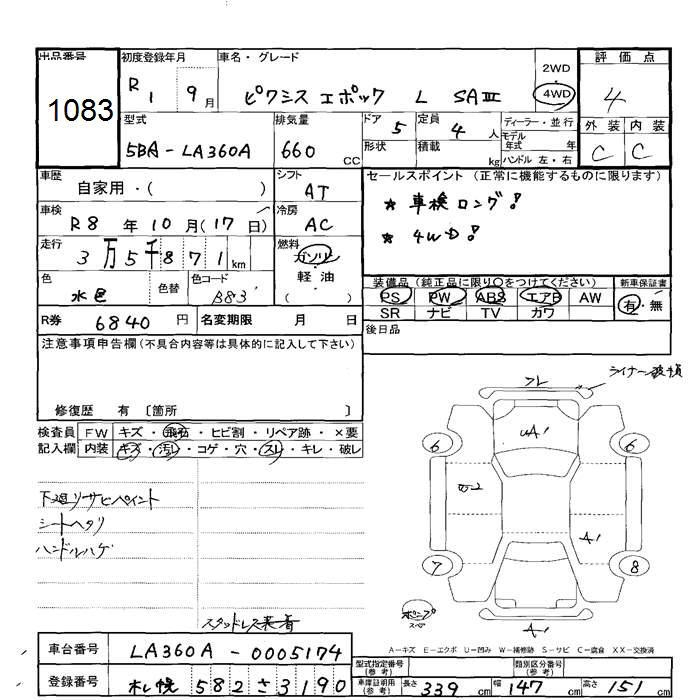 出品番号 初度登録年月 車名・グレード 2WD 評価点
1083 R1 9月 ピクシス エポック L SAⅢ 4WD 4
型式 排気量 ドア 5 定員 4人 ディーラー・並行 外装 内装
5BA-LA360A 660cc 形状 積載 kg モデル年式 年 C C
ハンドル 左・右
車歴 自家用・( ) シフト AT セールスポイント (正常に機能するものに限ります)
車検 R8年10月(17日) 冷房 AC ★ 車検ロング!
走行 3万5千871km 燃料 ガソリン ★ 4WD!
色 水色 色替 色コード B83 軽油 ( )
装備品 (純正品に限り○をつけてください) 新車保証書
PS PW ABS エアB AW 有・無
SR ナビ TV カワ
R券 6840円 名変期限 月 日 後日品
注意事項申告欄(不具合内容等は具体的に記入して下さい)
修復歴 有 〔箇所 〕
ライナー破損
検査員 FW キズ・飛石・ヒビ割・リペア跡・×要
記入欄 内装 キズ・汚レ・コゲ・穴・スレ・キレ・破レ
下廻リサビペイント
シートヘタリ
ハンドルハゲ
スタッドレス装着
フレ
UA1
6 6
A1
7 8
A1
A-キズ E-エクボ U-凹み W-補修跡 S-サビ C-腐食 XX-交換済
車台番号 LA360A-0005174
登録番号 札幌 582 さ 3190
型式指定番号(参考) 類別区分番号(参考)
車庫証明用(参考) 長さ 339cm 幅 147cm 高さ 151cm